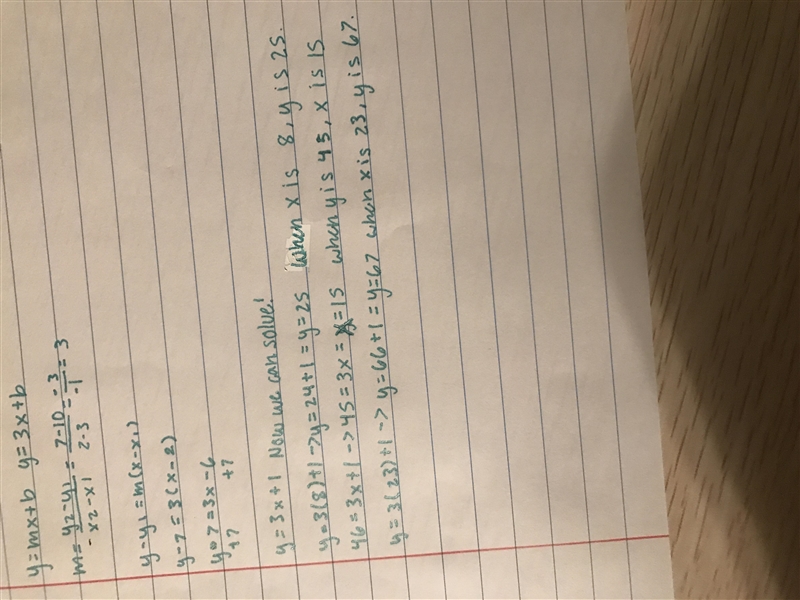 y=mx+b y=3x+b
m= y2-y1 / x2-x1 = 7-10 / 2-3 = -3 / -1 = 3
y-y1=m(x-x1)
y-7=3(x-2)
y-7=3x-6
+7 +7
y=3x+1 Now we can solve!
y=3(8)+1->y=24+1=y=25 when x is 8, y is 25.
46=3x+1->45=3x=x=15 when y is 45, x is 15
y=3(23)+1->y=66+1=y=67 when x is 23, y is 67.